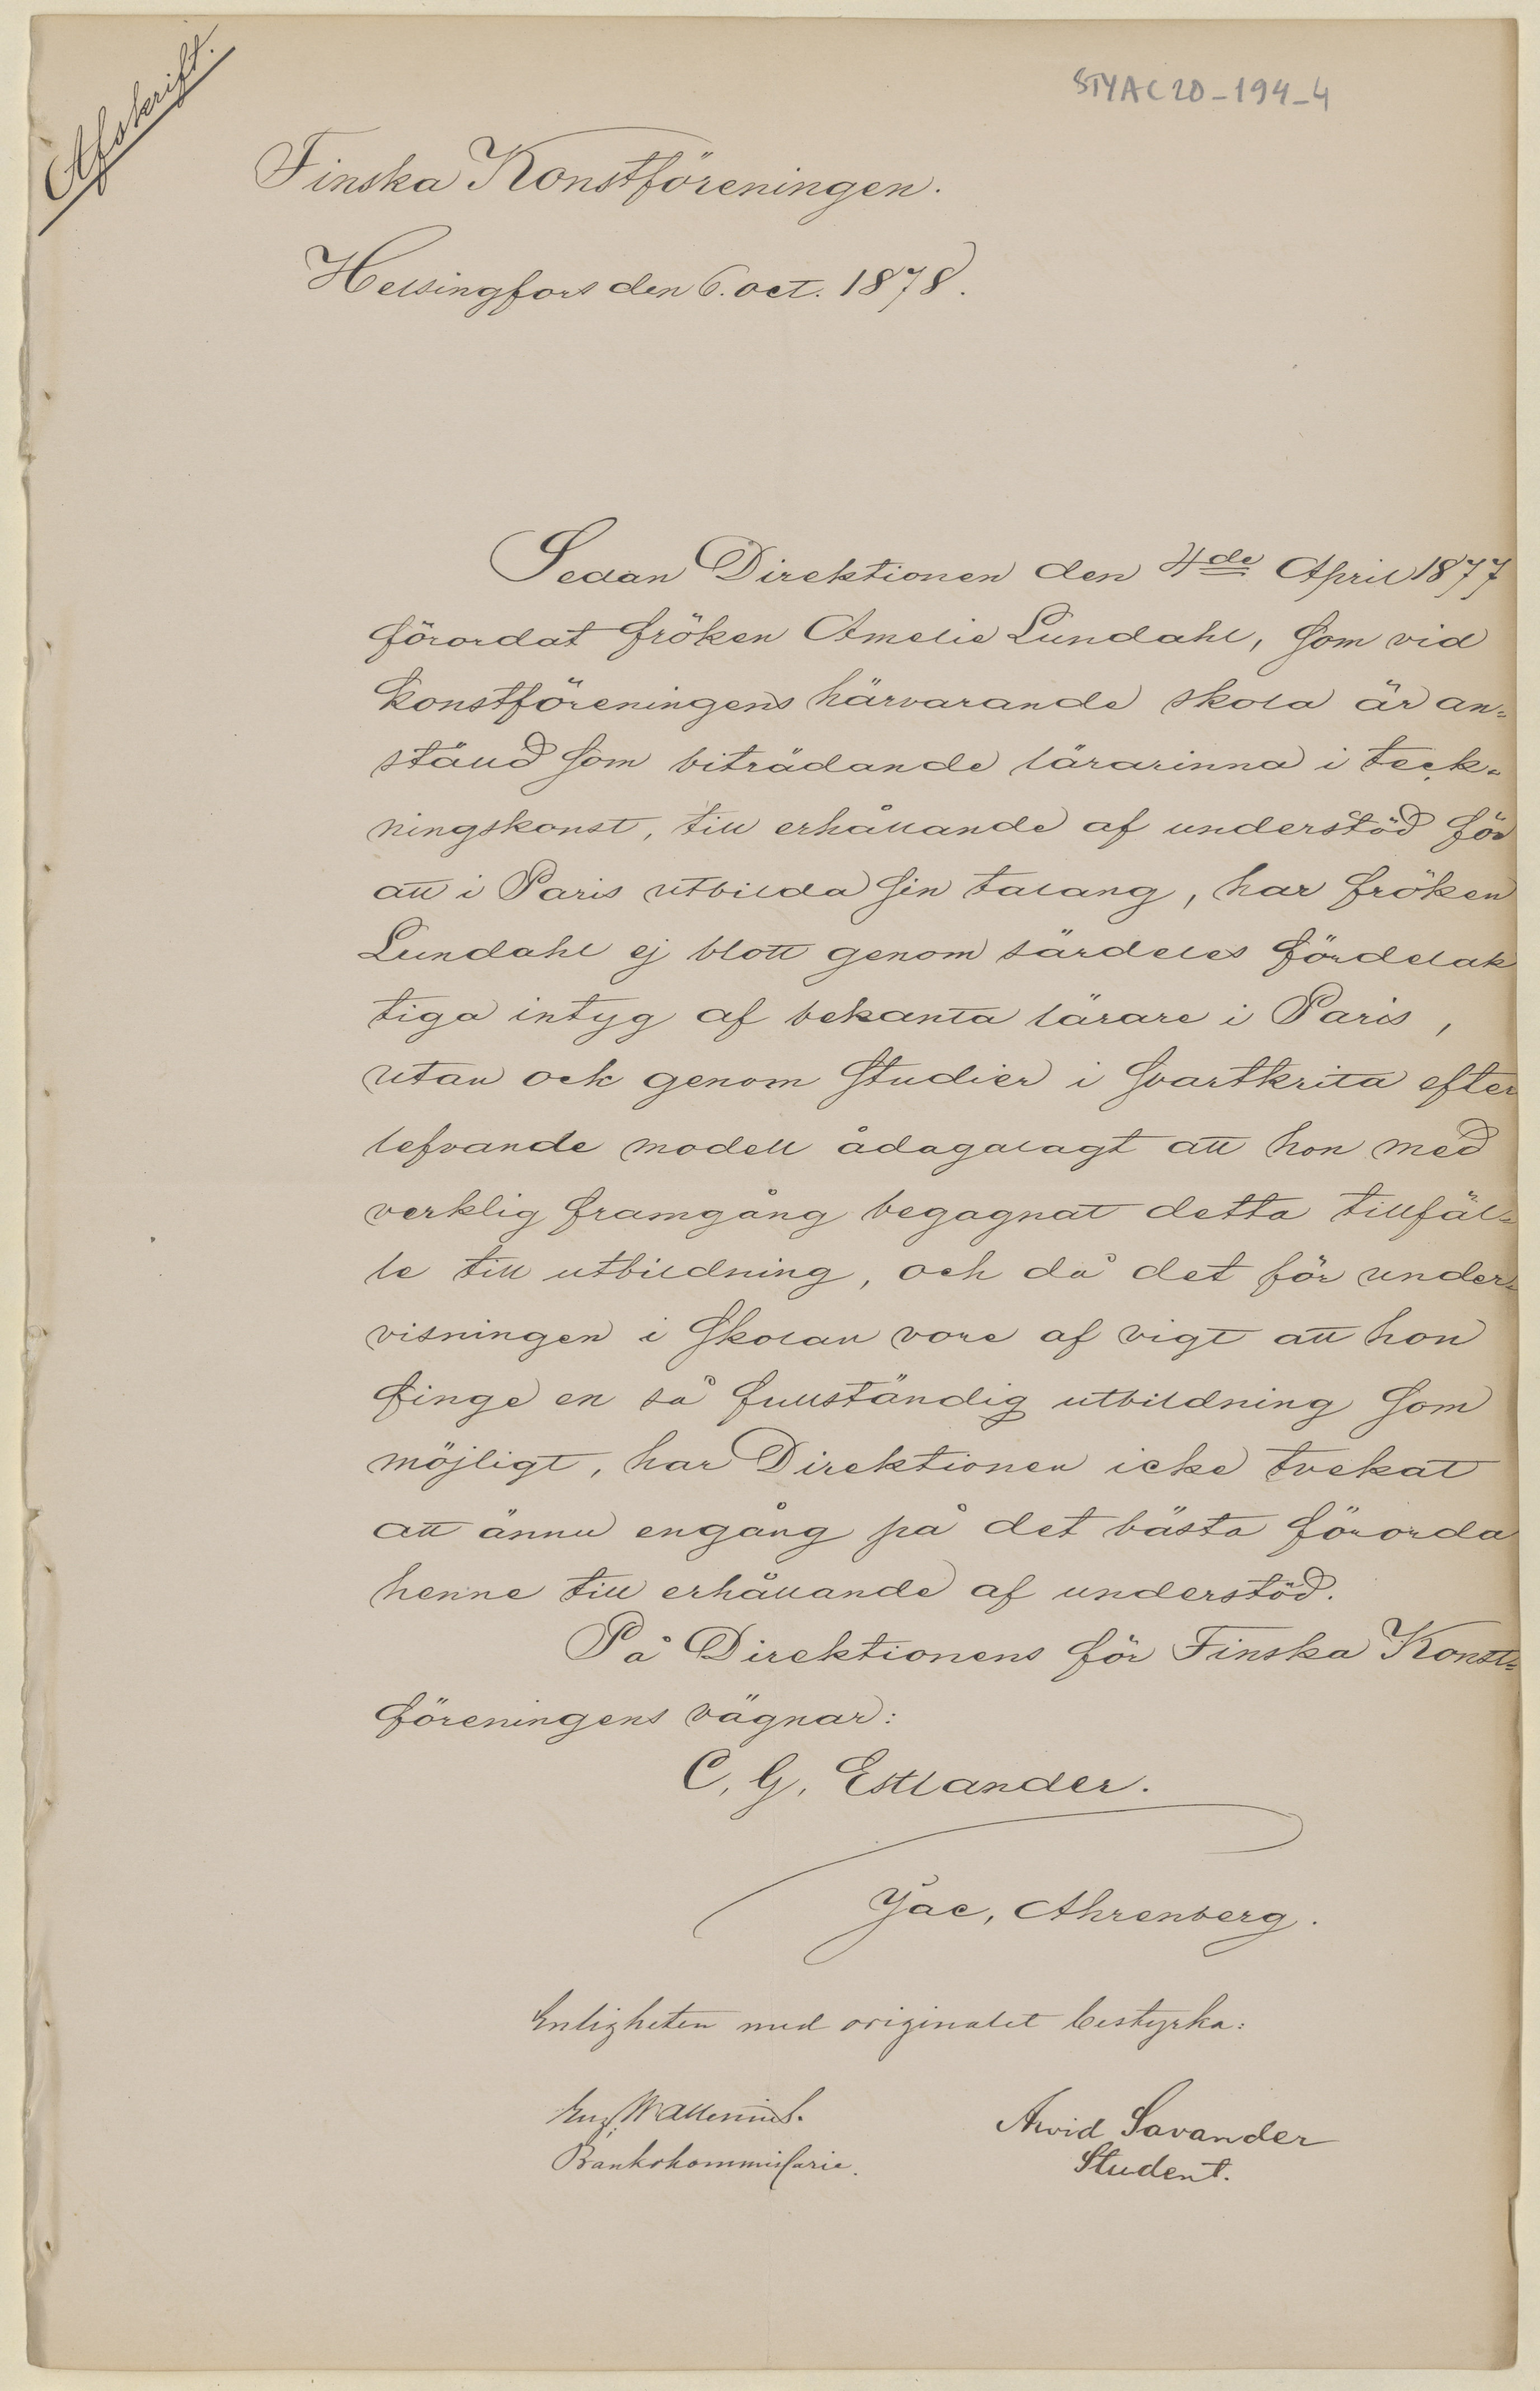 Afskrift.
STYAC20-194-4
Finska Konstföreningen.
Helsingfors den 6. oct. 1878.
Sedan Direktionen den 4de April 1877
förordat fröken Amelie Lundahl, som vid
Konstföreningens härvarande skola är an=
ställd som biträdande lärarinna i teck=
ningskonst, till erhållande af understöd för
att i Paris utbilda sin talang, har fröken
Lundahl ej blott genom särdeles fördelak
tiga intyg af bekanta lärare i Paris,
utan ock genom studier i svartkrita efter
lefvande modell ådagalagt att hon med
verklig framgång begagnat detta tillfäl=
le till utbildning, och då det för under=
visningen i skolan vore af vigt att hon
finge en så fullständig utbildning som
möjligt, har Direktionen icke tvekat
att ännu engång på det bästa förorda
henne till erhållande af understöd.
På Direktionens för Finska Konst=
föreningens vägnar:
C. G. Estlander.
Jac. Ahrenberg.
Enligheten med originalet bestyrka:
Eug. Wallenius.
Arvid Savander
Bankokommissarie.
Student.